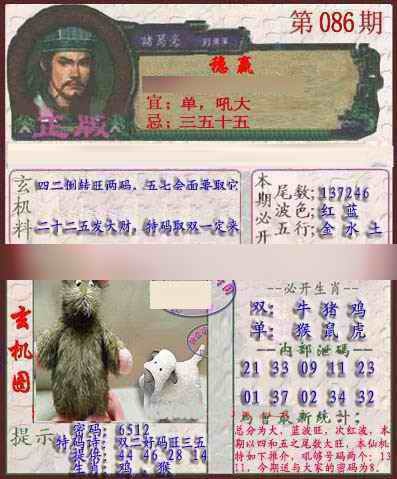 第086期
諸葛亮
穩贏
宜：单，吼大
忌：三五十五
正版
玄机料
四二倒赫旺两码，五七会面要取它
二十二五发大财，特码取双一定来
本期必开
尾数：137246
波色：红 蓝
五行：金 水 土
玄机图
必开生肖
双：牛 猪 鸡
单：猴 鼠 虎
内部泄码
21 33 09 11 23
01 37 02 34 32
提示
密码：6512
特码诗：双二好码旺三五
提供：44 46 28 14
生肖：鸡，猴
最新统计：
总分为大，蓝波旺，次红波，本期以四和五之尾数大旺，本仙机特如下推介，吼够号码两个：13 11，今期送与大家的密码为8.